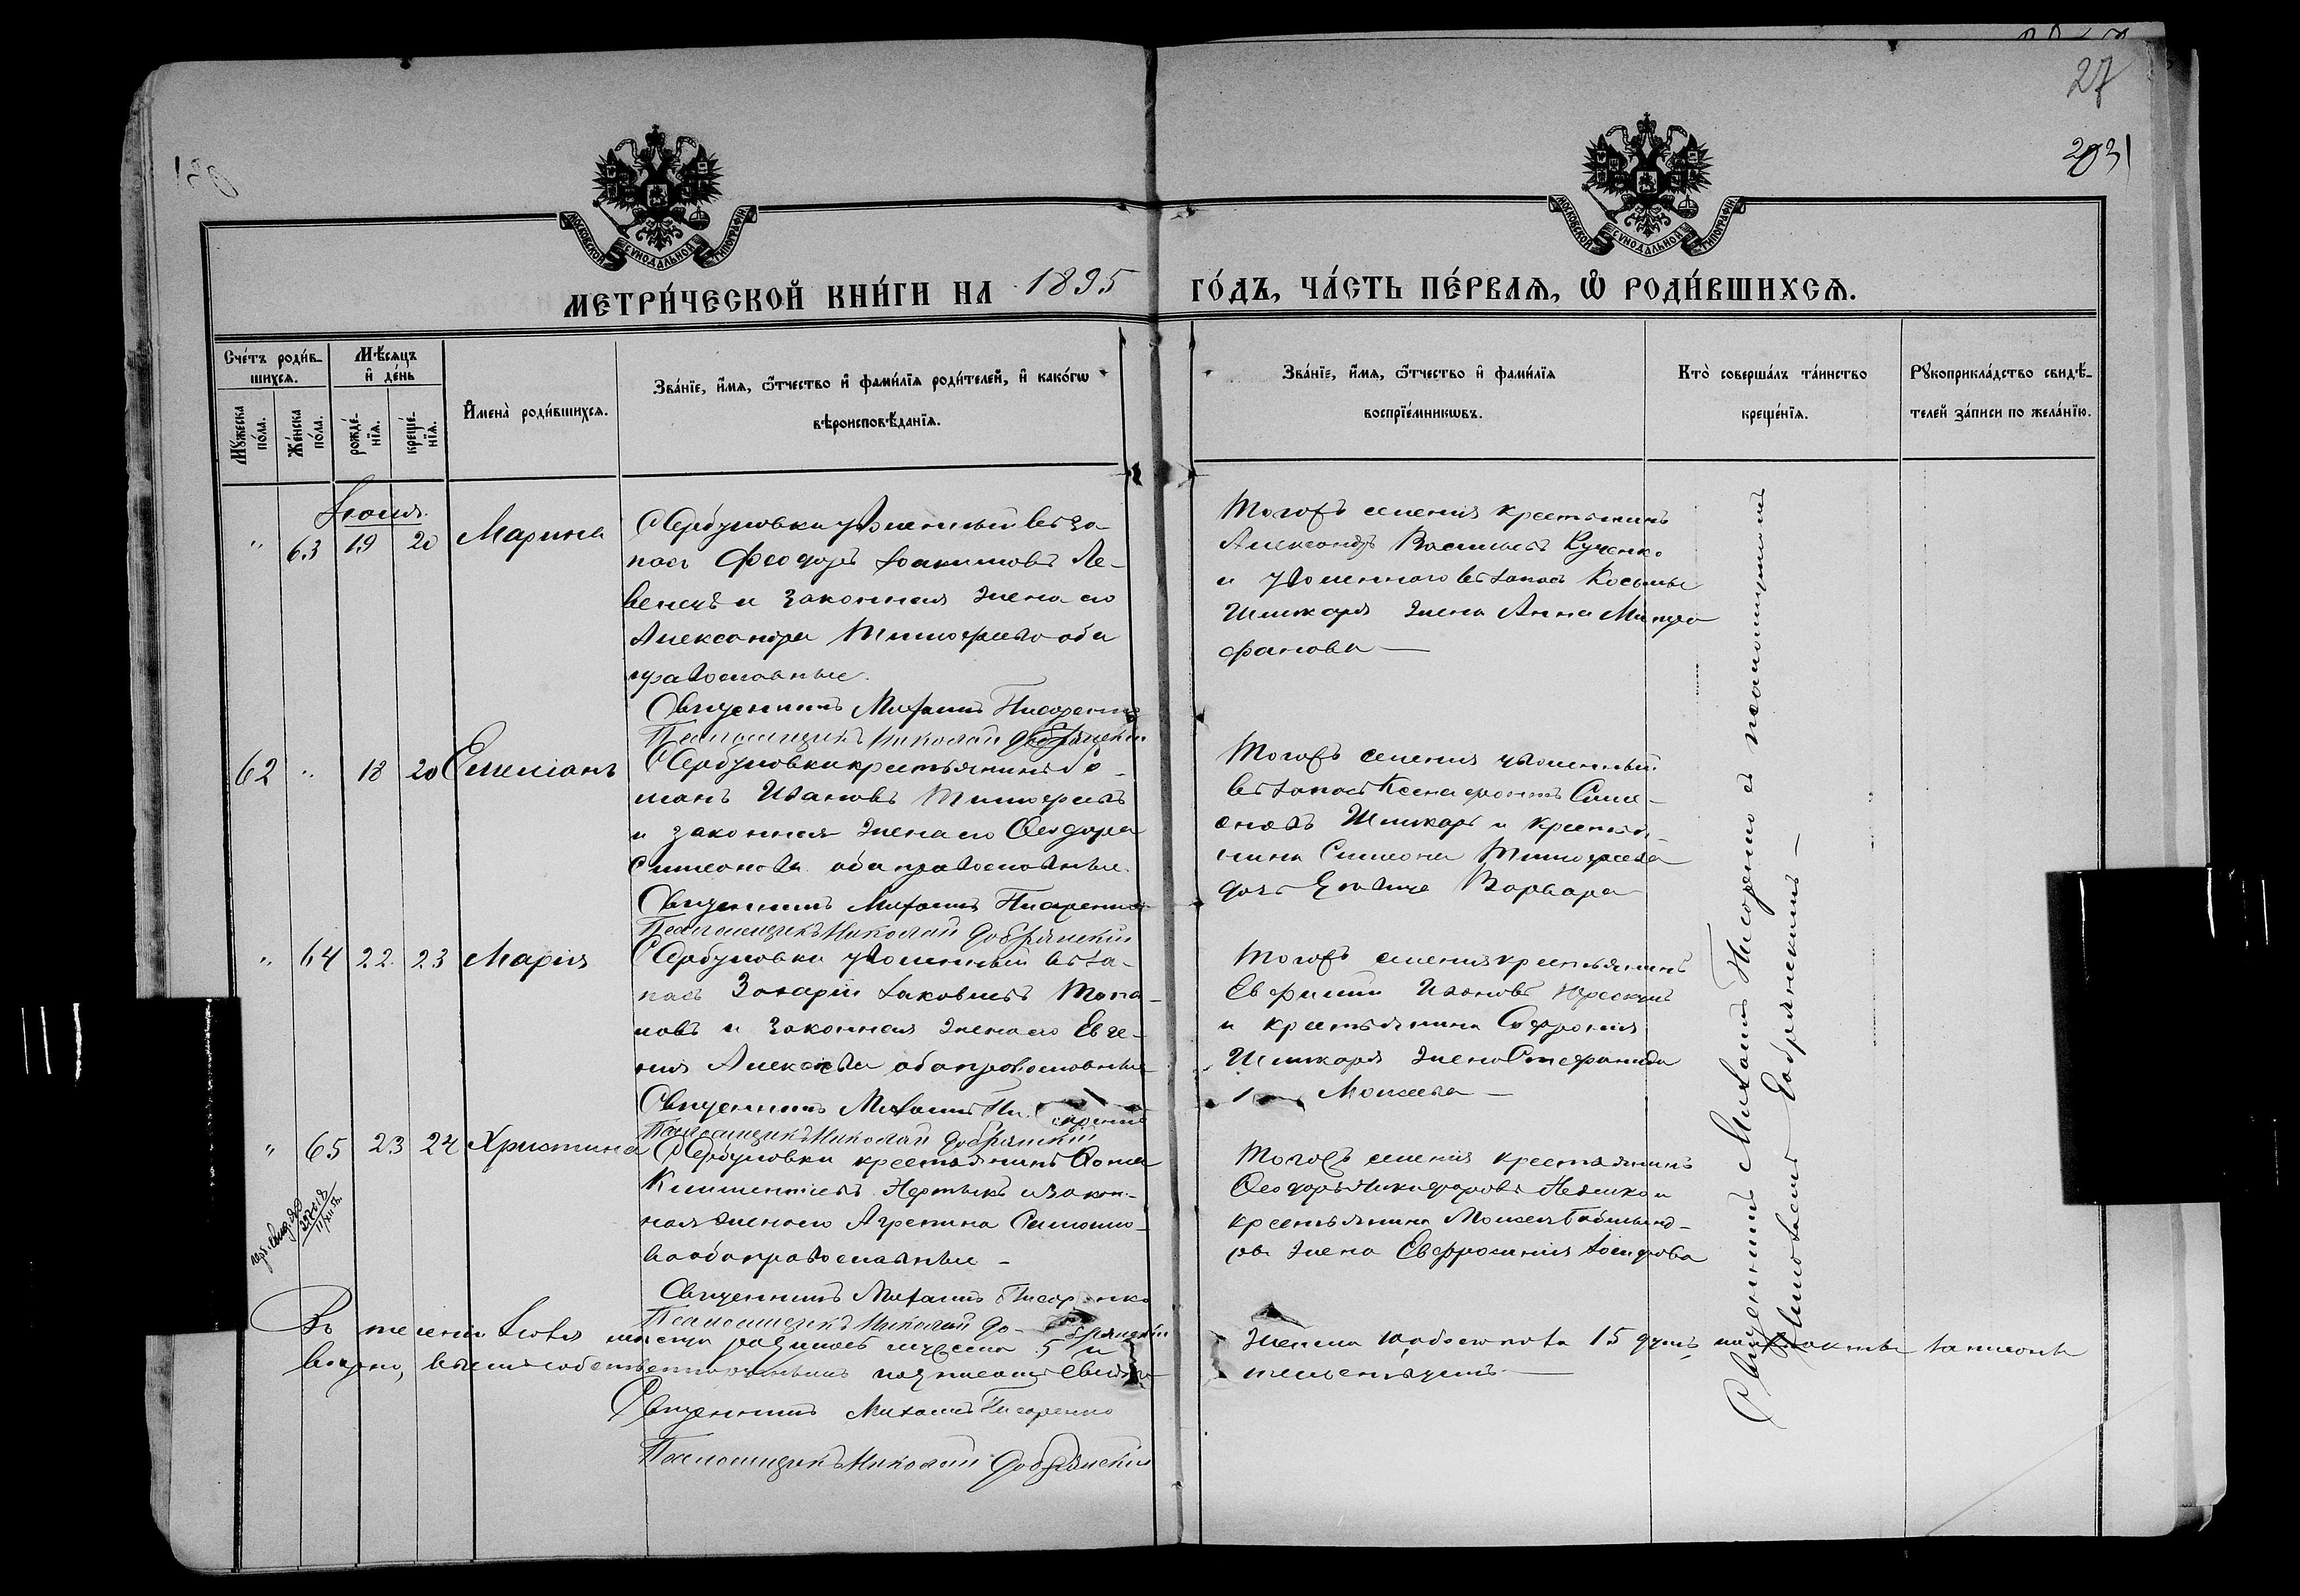 27
203
МОСКОВСКОЙ СѴНОДАЛЬНОЙ ТИПОГРАФІИ
МОСКОВСКОЙ СѴНОДАЛЬНОЙ ТИПОГРАФІИ
МЕТРИ́ЧЕСКОЙ КНИ́ГИ НА 1895 ГО́ДЪ, ЧА́СТЬ ПЕ́РВАѦ, Ѡ҆ РОДИ́ВШИХСѦ.
Сче́тъ роди́в-
шихсѧ.
Мꙋ́жеска по́ла.
Же́нска по́ла.
Мѣ́сѧцъ
и҆ де́нь
рожде́-
нїѧ.
креще́-
нїѧ.
И҆мена̀ роди́вшихсѧ.
Зва́нїе, и҆́мѧ, ѻ҆́тчество и҆ фами́лїѧ роди́телей, и҆ како́гѡ
вѣроисповѣ́данїѧ.
Зва́нїе, и҆́мѧ, ѻ҆́тчество и҆ фами́лїѧ
воспрїе́мникѡвъ.
Кто̀ соверша́лъ та́инство
креще́нїѧ.
Рꙋкоприкла́дство свидѣ́-
телей за́писи по жела́нїю.
Іюля.
" 63 19 20 Марина
С Сербуловки уволенный въ за-
пасъ Феодоръ Іоакимовъ Ле-
венецъ и законная жена его
Александра Тимофеева оба
православные.
Священникъ Михаилъ Писаренко
Псаломщикъ Николай Добрянскій
Тогожъ селенія крестьянинъ
Александръ Васильевъ Куценко
и уволеннаго въ запасъ Косьмы
Шишкаря жена Анна Митро
фанова —
62 " 18 20 Емеліанъ
С Сербуловки крестьянинъ Ро-
манъ Ивановъ Тимофеевъ
и законная жена его Феодора
Симеонова оба православные.
Священникъ Михаилъ Писаренко
Псаломщикъ Николай Добрянскій
Тогожъ селенія уволенный
въ запасъ Ксенафонтъ Симе-
оновъ Шишкарь и крестья-
нина Симеона Тимофеева
дочь девица Варвара
" 64 22 23 Марія
С Сербуловки уволенный въ за-
пасъ Захарій Іаковлевъ
и законная жена его Евге-
нія Алексеева оба православные
Священникъ Михаилъ Писаренко
Псаломщикъ Николай Добрянскій
Тогожъ селенія крестьянинъ
Евфимій Ивановъ
и крестьянина Софронія
Шишкаря жена Стефанида
Моисеева —
" 65 23 24 Христина
С Сербуловки крестьянинъ Фома
Климентіевъ и закон-
ная жена его Агрепина
ва оба православные —
Священникъ Михаилъ Писаренко
Псаломщикъ Николай Добрянскій
Тогожъ селенія крестьянинъ
Феодоръ Никифоровъ
крестьянина Моисея
жена Евфросинія Іосифова
Священникъ Михаилъ Писаренко съ псаломщикомъ
Николаемъ Добрянскимъ —
Въ теченіи Іюля месяца родилось мужеска 5 и женска 10, обоего пола 15 душъ, что акты записаны
верно, въ чемъ собственноручнымъ подписомъ свидетельствуемъ —
Священникъ Михаилъ Писаренко
Псаломщикъ Николай Добрянскій